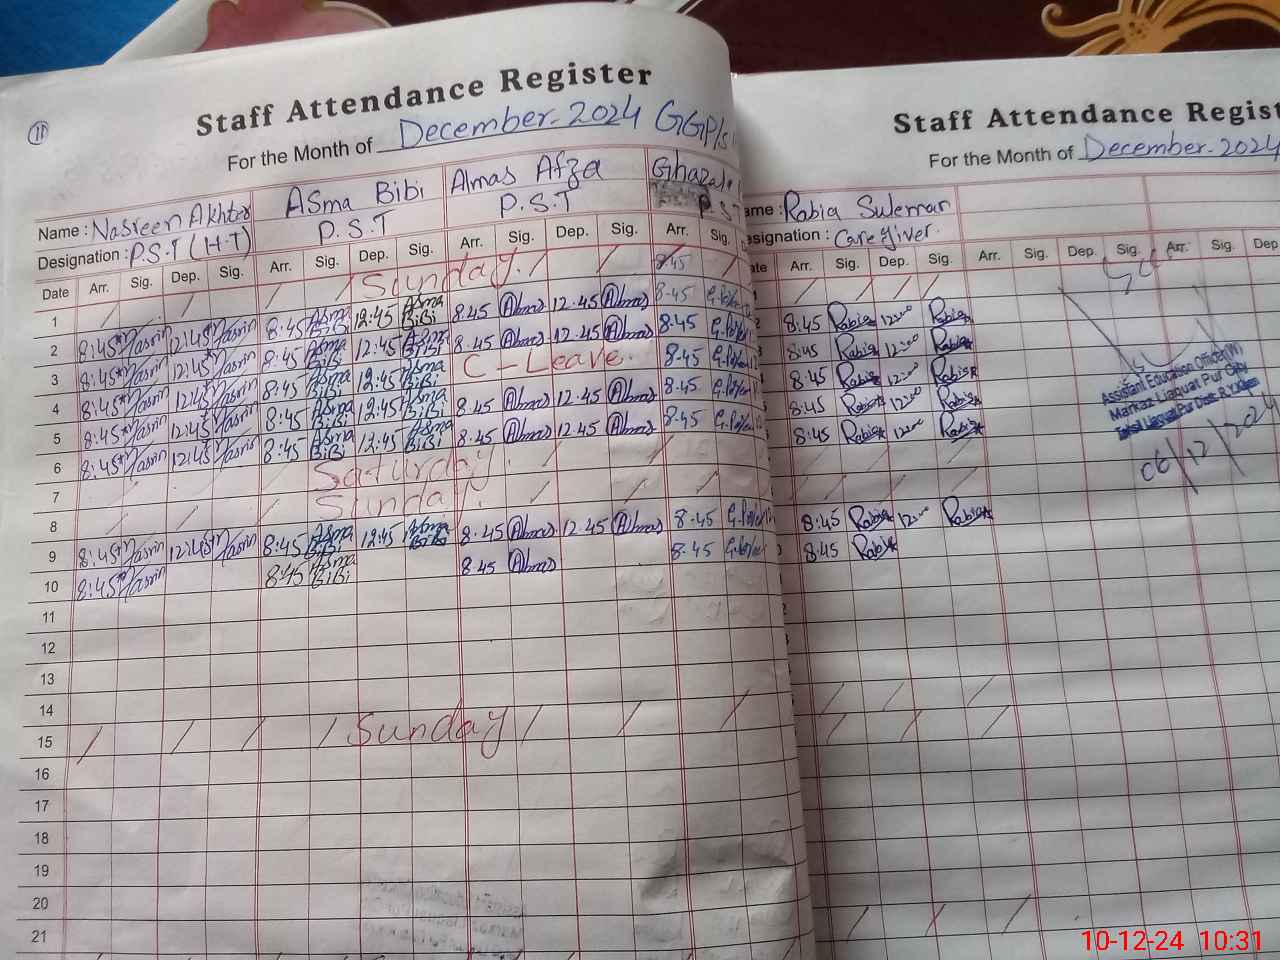 11
Staff Attendance Register
For the Month of December. 2024 GGP/s
Name : Nasreen Akhter ASma Bibi Almas Afza Ghazala
Designation : P.S.T (H.T) P.S.T P.S.T P.S.T
Date Arr. Sig. Dep. Sig. Arr. Sig. Dep. Sig. Arr. Sig. Dep. Sig. Arr. Sig.
1 / / / / / Sunday. / / 8:45
2 8:45 Nasrin 12:45 Nasrin 8:45 ASma BiBi 12:45 ASma BiBi 8:45 Almas 12.45 Almas 8:45
3 8:45 Nasrin 12:45 Nasrin 8:45 ASma BiBi 12:45 ASma BiBi 8.45 Almas 12.45 Almas 8:45
4 8:45 Nasrin 12:45 Nasrin 8:45 ASma BiBi 12:45 ASma BiBi C - Leave. 8:45
5 8:45 Nasrin 12:45 Nasrin 8:45 ASma BiBi 12:45 ASma BiBi 8.45 Almas 12.45 Almas 8:45
6 8:45 Nasrin 12:45 Nasrin 8:45 ASma BiBi 12:45 ASma BiBi 8.45 Almas 12.45 Almas 8:45
7 / / / / Saturday. / / /
8 / / / / Sunday. / / /
9 8:45 Nasrin 12:45 Nasrin 8:45 ASma BiBi 12:45 ASma BiBi 8.45 Almas 12.45 Almas 8:45
10 8:45 Nasrin 8:45 ASma BiBi 8.45 Almas 8:45
11
12
13
14
15 / / / / Sunday / / /
16
17
18
19
20
21
Staff Attendance Regist
For the Month of December. 2024
ame : Rabia Suleman
esignation : Care giver.
ate Arr. Sig. Dep. Sig. Arr. Sig. Dep. Sig. Arr. Sig. Dep
/ / / /
8:45 Rabia 12:00 Rabia
8:45 Rabia 12:00 Rabia
8:45 Rabia 12:00 Rabia
8:45 Rabia 12:00 Rabia
8:45 Rabia 12:00 Rabia
/ / / /
/ / / /
8:45 Rabia 12:00 Rabia
8:45 Rabia
Assistant Education Officer(W)
Markaz Liaquat Pur City
Tehsil Liaquat Pur Distt: R.Y.Khan
06/12/2024
10-12-24 10:31